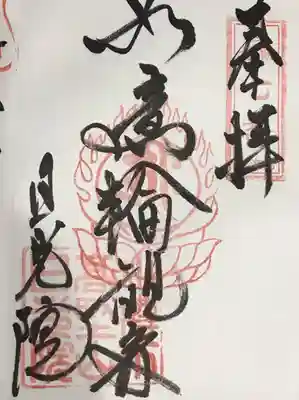 奉拝
如意輪観音
日光院